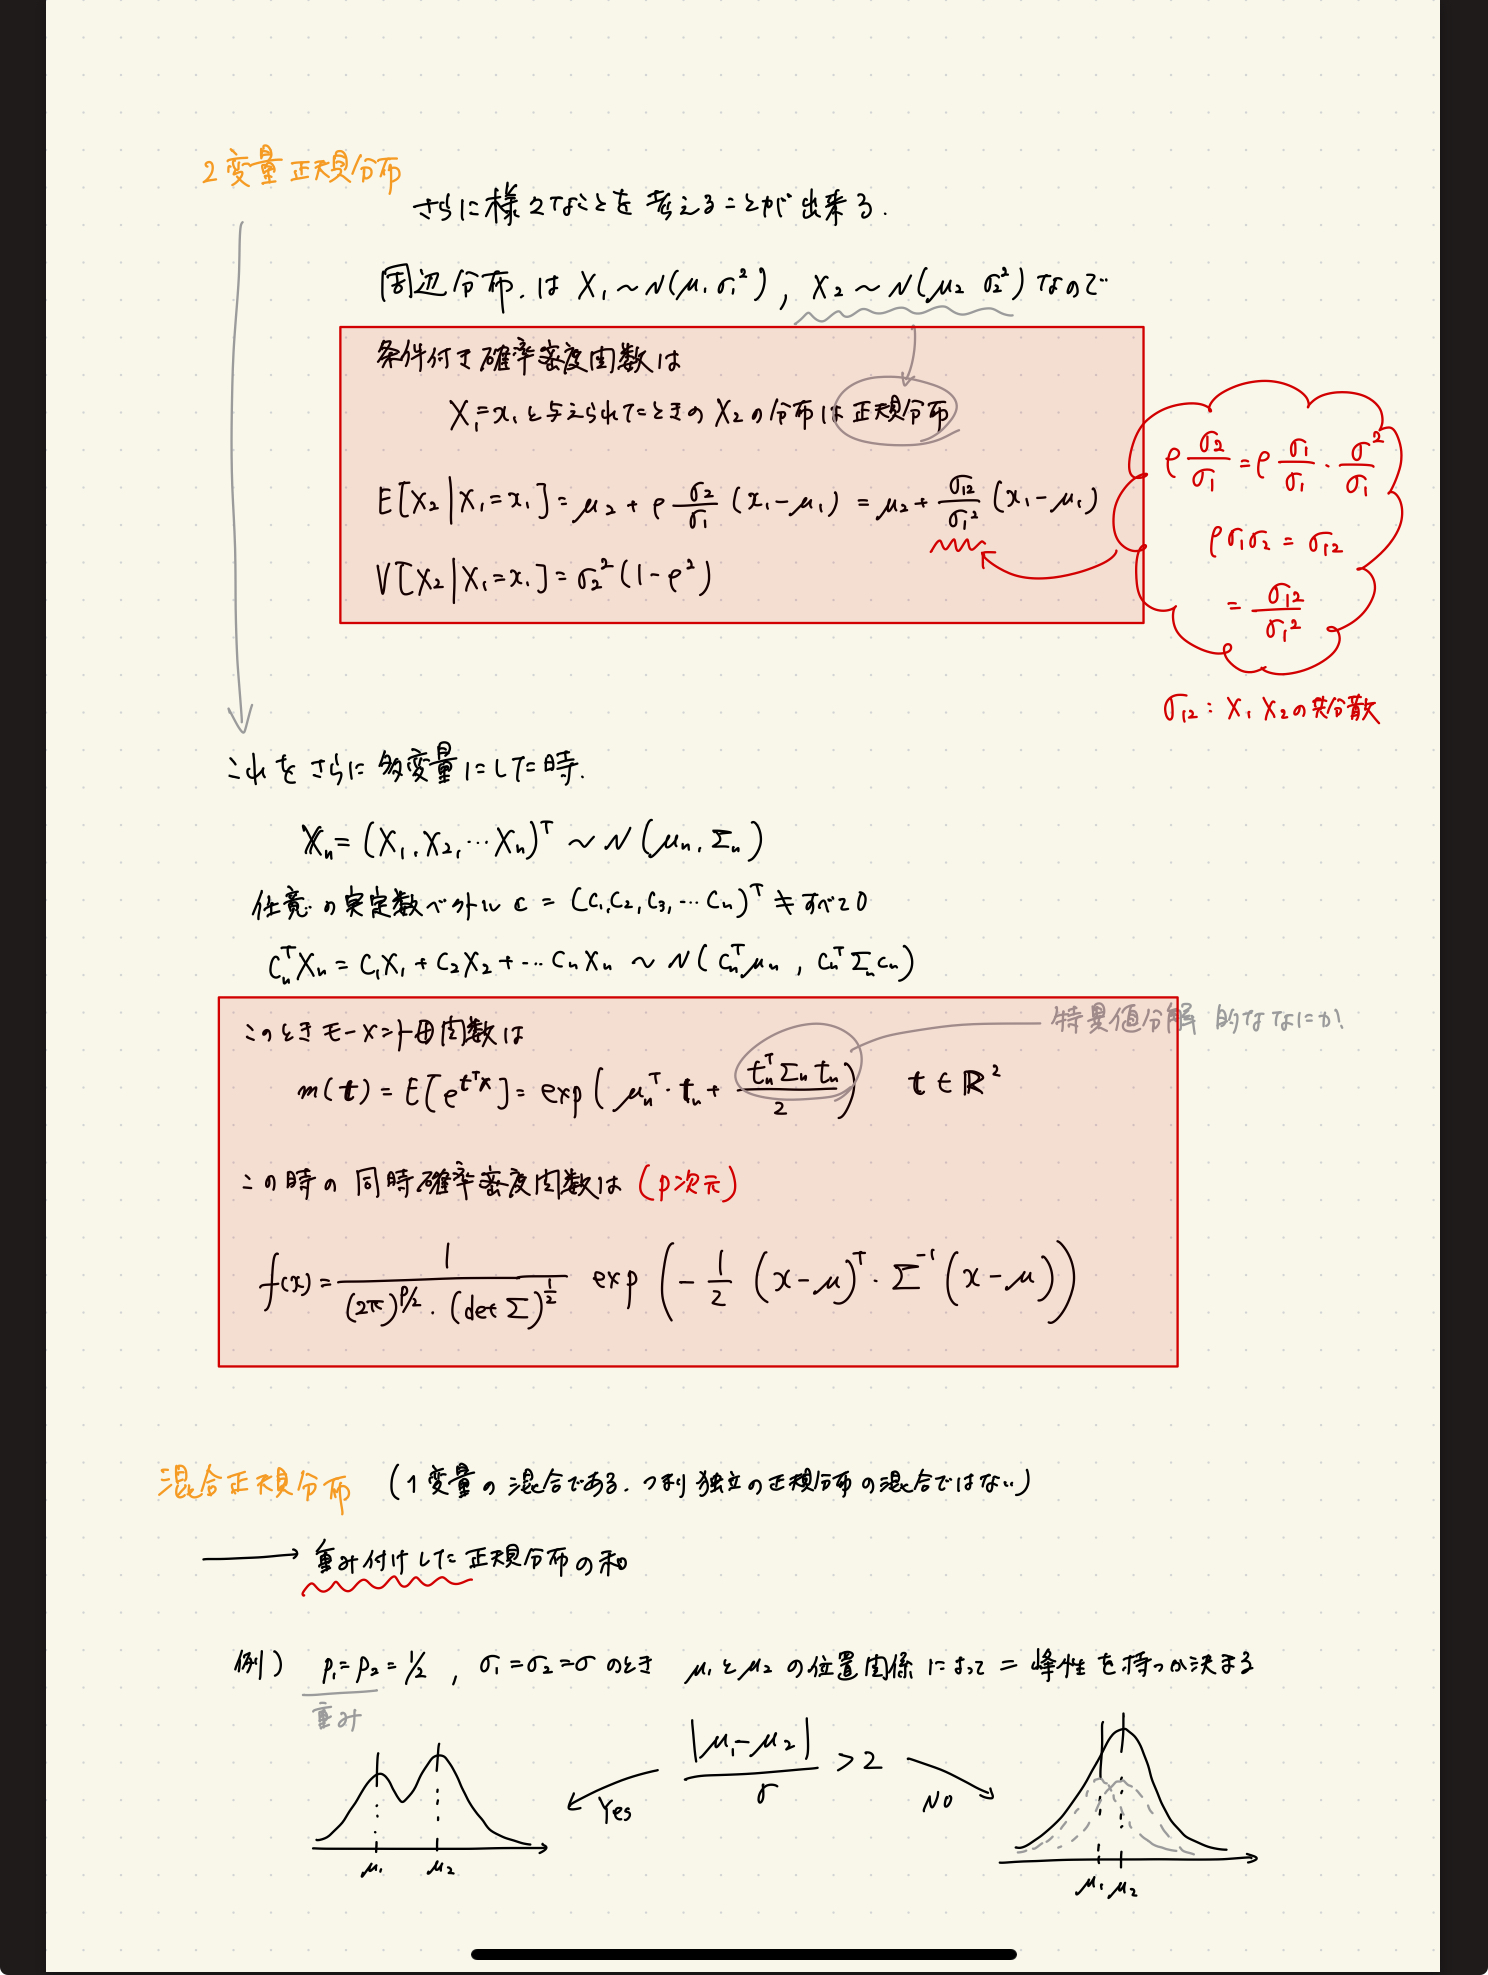 2変量正規分布
さらに様々なことを考えることが出来る.
周辺分布.は X₁ ~ N(μ₁ σ₁²), X₂ ~ N(μ₂ σ₂²) なので
条件付き確率密度関数は
X₁=x₁と与えられてたときの X₂の分布は 正規分布
E[X₂|X₁=x₁] = μ₂ + ρ σ₂/σ₁ (x₁-μ₁) = μ₂ + σ₁₂/σ₁² (x₁-μ₁)
V[X₂|X₁=x₁] = σ₂²(1-ρ²)
ρ σ₂/σ₁ = ρ σ₁/σ₁ · σ²/σ₁
ρσ₁σ₂ = σ₁₂
= σ₁₂/σ₁²
σ₁₂ : X₁ X₂の共分散
これをさらに多変量にした時.
𝕏ₙ = (X₁, X₂, … Xₙ)ᵀ ~ N(μₙ, Σₙ)
任意の実定数ベクトル 𝕔 = (C₁, C₂, C₃, … Cₙ)ᵀ ≠ すべて0
Cₙᵀ Xₙ = C₁X₁ + C₂X₂ + … CₙXₙ ~ N(Cₙᵀμₙ, CₙᵀΣₙCₙ)
このときモーメント母関数は
特異値分解 的ななにか!
m(𝕥) = E[e^(tᵀx)] = exp(μₙᵀ · 𝕥ₙ + tₙᵀΣₙtₙ/2) 𝕥 ∈ ℝ²
この時の同時確率密度関数は (P次元)
f(x) = 1/((2π)^(P/2) · (det Σ)^(1/2)) exp(-1/2 (x-μ)ᵀ · Σ⁻¹ (x-μ))
混合正規分布 (1変量の混合である. つまり独立の正規分布の混合ではない)
→ 重み付けした正規分布の和
例) P₁=P₂=1/2, σ₁=σ₂=σ のとき μ₁とμ₂の位置関係によって二峰性を持つか決まる
重み
|μ₁-μ₂|/σ > 2
Yes
NO
μ₁ μ₂
μ₁ μ₂